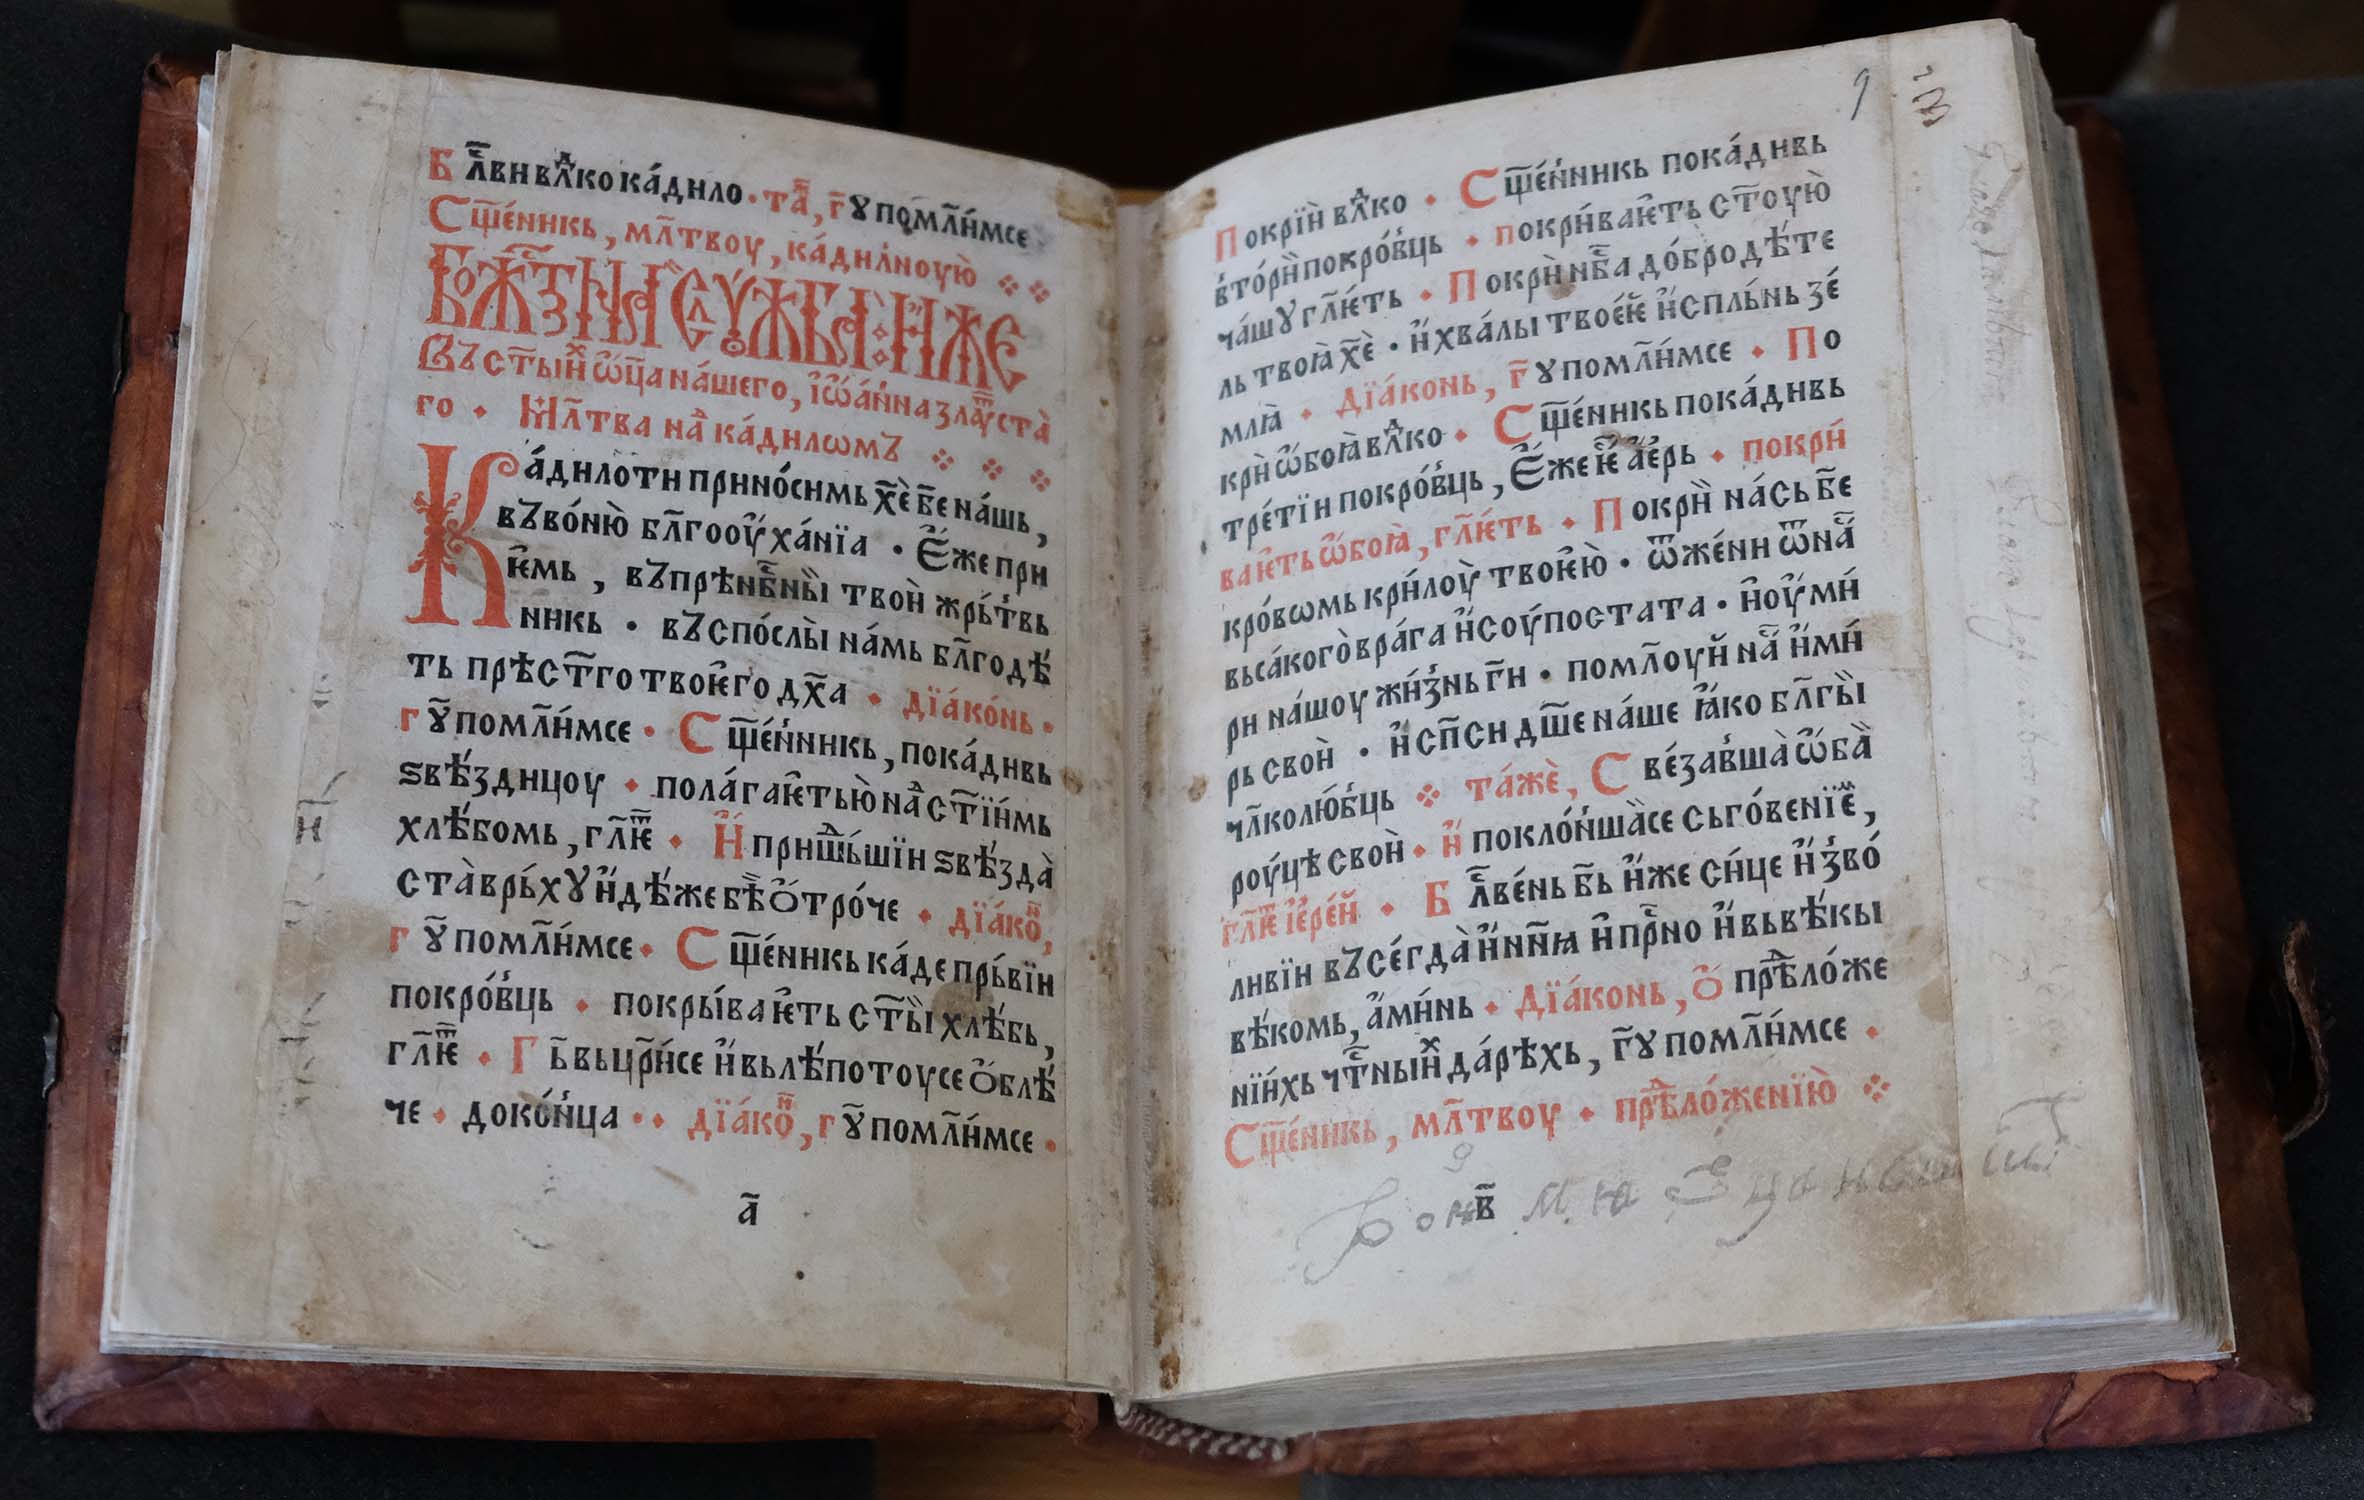 Бл҃ви вл҃ко ка́дило · та҃, г҃ꙋ помл҃и́мсе
Сщ҃е́никь, мл҃твоу, ка́дилноую̀
Бж҃ствьнаа слꙋ́жба и҆́же
Въ ст҃ы́и҆х ѡ҆ц҃а на́шего, і҆ѡа́нна злⷶ꙯ꙋста̀
го · Мл҃тва наⷣ ка́диломъ
Ка́дило ти прино́симь хе҃̀ бе҃ на́шь,
въ во́ню̀ бл҃гооу҆ха́нїа · Е҆́же при
ѥ҆́мь, въ прѣнбⷭ҇ны̏и твои̏ жрь́твь
никь · въспо́слы̀ на́мь бл҃годѣ́
ть прѣст҃го твоѥ҆го дх҃а · дїа́ко́нь ·
г ꙋ҃ помл҃и́мсе · Сщ҃е́нникь, пока́дивь
ѕвѣ́здицоу · пола́гаѥ҆тью̀ наⷣ ст҃їи́мь
хлѣ́бомь, гл҃ѥⷮ · И҆ прише́дьшїи ѕвѣ́зда̀
ста̀ врь́хꙋ и҆дѣ́же бѣ̏ ѻ҆тро́че · дїа́коⷩ,
г ꙋ҃ помл҃и́мсе · Сщ҃е́никь ка́де прь́вїи
покро́в҆ць · покры́ваѥ҆ть ст҃ы̏и хлѣ́бь,
гл҃ѥⷮ · Гь҃ вьцр҃и́се и҆ вьлѣ́потоу се ѻ҆блѣ́
че · до ко́н҆ца · · дїа́коⷩ, г ꙋ҃ помл҃и́мсе ·
а҃
9
Покрїи̏ вл҃ко · Сщ҃е́н҆никь пока́дивь
в҆то́ри̏ покро́в҆ць · покри́ваѥ҆ть ст҃оую̀
ча́шꙋ гл҃ѥ́ть · Покри̏ нбⷭ҇а до́бродѣ́те
ль твоꙗ̀ хе҃̀ · и҆ хва́лы твоѥ́ѥ и҆спль́нь зе́
млꙗ̀ · Дїа́конь, г҃ꙋ помл҃и́мсе · По
кри̏ ѡ҆́боꙗ̀ вл҃ко · Сщ҃е́нникь пока́дивь
тре́тїи покро́в҆ць, Е҆́же ѥⷭ҇ а҆е҆́рь · покри́
ваѥ҆ть ѡ҆́боꙗ̀, гл҃ѥ́ть · Покри̏ на́сь бе҃
кро́вомь кри́лоу̀ твоѥ҆ю̀ · ѿже́ни ѿ наⷭ
вьса́кого̀ вра́га и҆ соу́постата · и҆ оу҆ми́
ри на́шоу жи́з҆нь гн҃и · помл҃оуи̏ наⷭ и҆ ми́
рь свои̏ · и҆ сп҃си дш҃е на́ше ꙗ҆́ко бл҃гы̏и
чл҃колю́б҆ць · та́же̏, Све́зав҆ша̀ ѡ҆ба̏
роу́цѣ свои̏ · и҆ покло́н҆ша̏се сьго́венїѥ̏,
гл҃ѥⷮ і҆ере́и̏ · Бл҃ве́нь бь҃ и҆́же си́це и҆з҆во́
ливїи въсе́гда̀ и҆ нн҃ꙗ и҆ прⷭ҇но и҆ вьвѣ́кы
вѣ́комь, а҆ми́нь · Дїа́конь, ѻ҆ прѣⷣло́же
нїи́хь чтⷭ҇ныи҆х да́рѣхь, г҃ꙋ помл҃и́мсе ·
Сщ҃е́никь, мл҃твоу · прѣⷣло́женїю̀
9
в҃